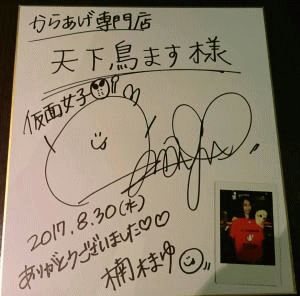 からあげ専門店
天下鳥ます様
仮面女子
2017.8.30(水)
ありがとうございました♡♡
楠木まゆ